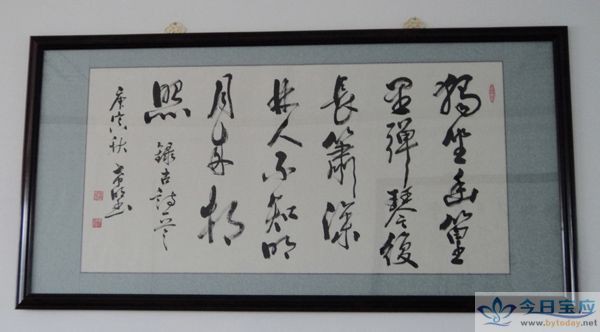 獨坐幽篁
里彈琴復
長簫深
林人不知明
月來相
照 錄古詩一首
庚寅秋
今日宝应
www.bytoday.net